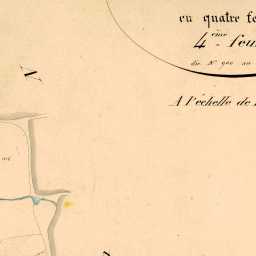 en quatre fe
4ème feu
du N° 900 au
A l'échelle de
N